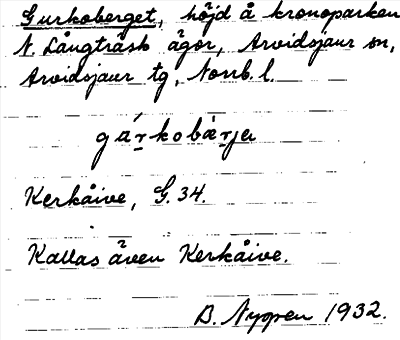 Gurkoberget, höjd å kronoparken
N. Långträsk ägor, Arvidsjaur sn,
Arvidsjaur tg, Norrb. l.
Kerkåive, G. 34.
Kallas även Kerkåive.
B. Nyppen 1932.